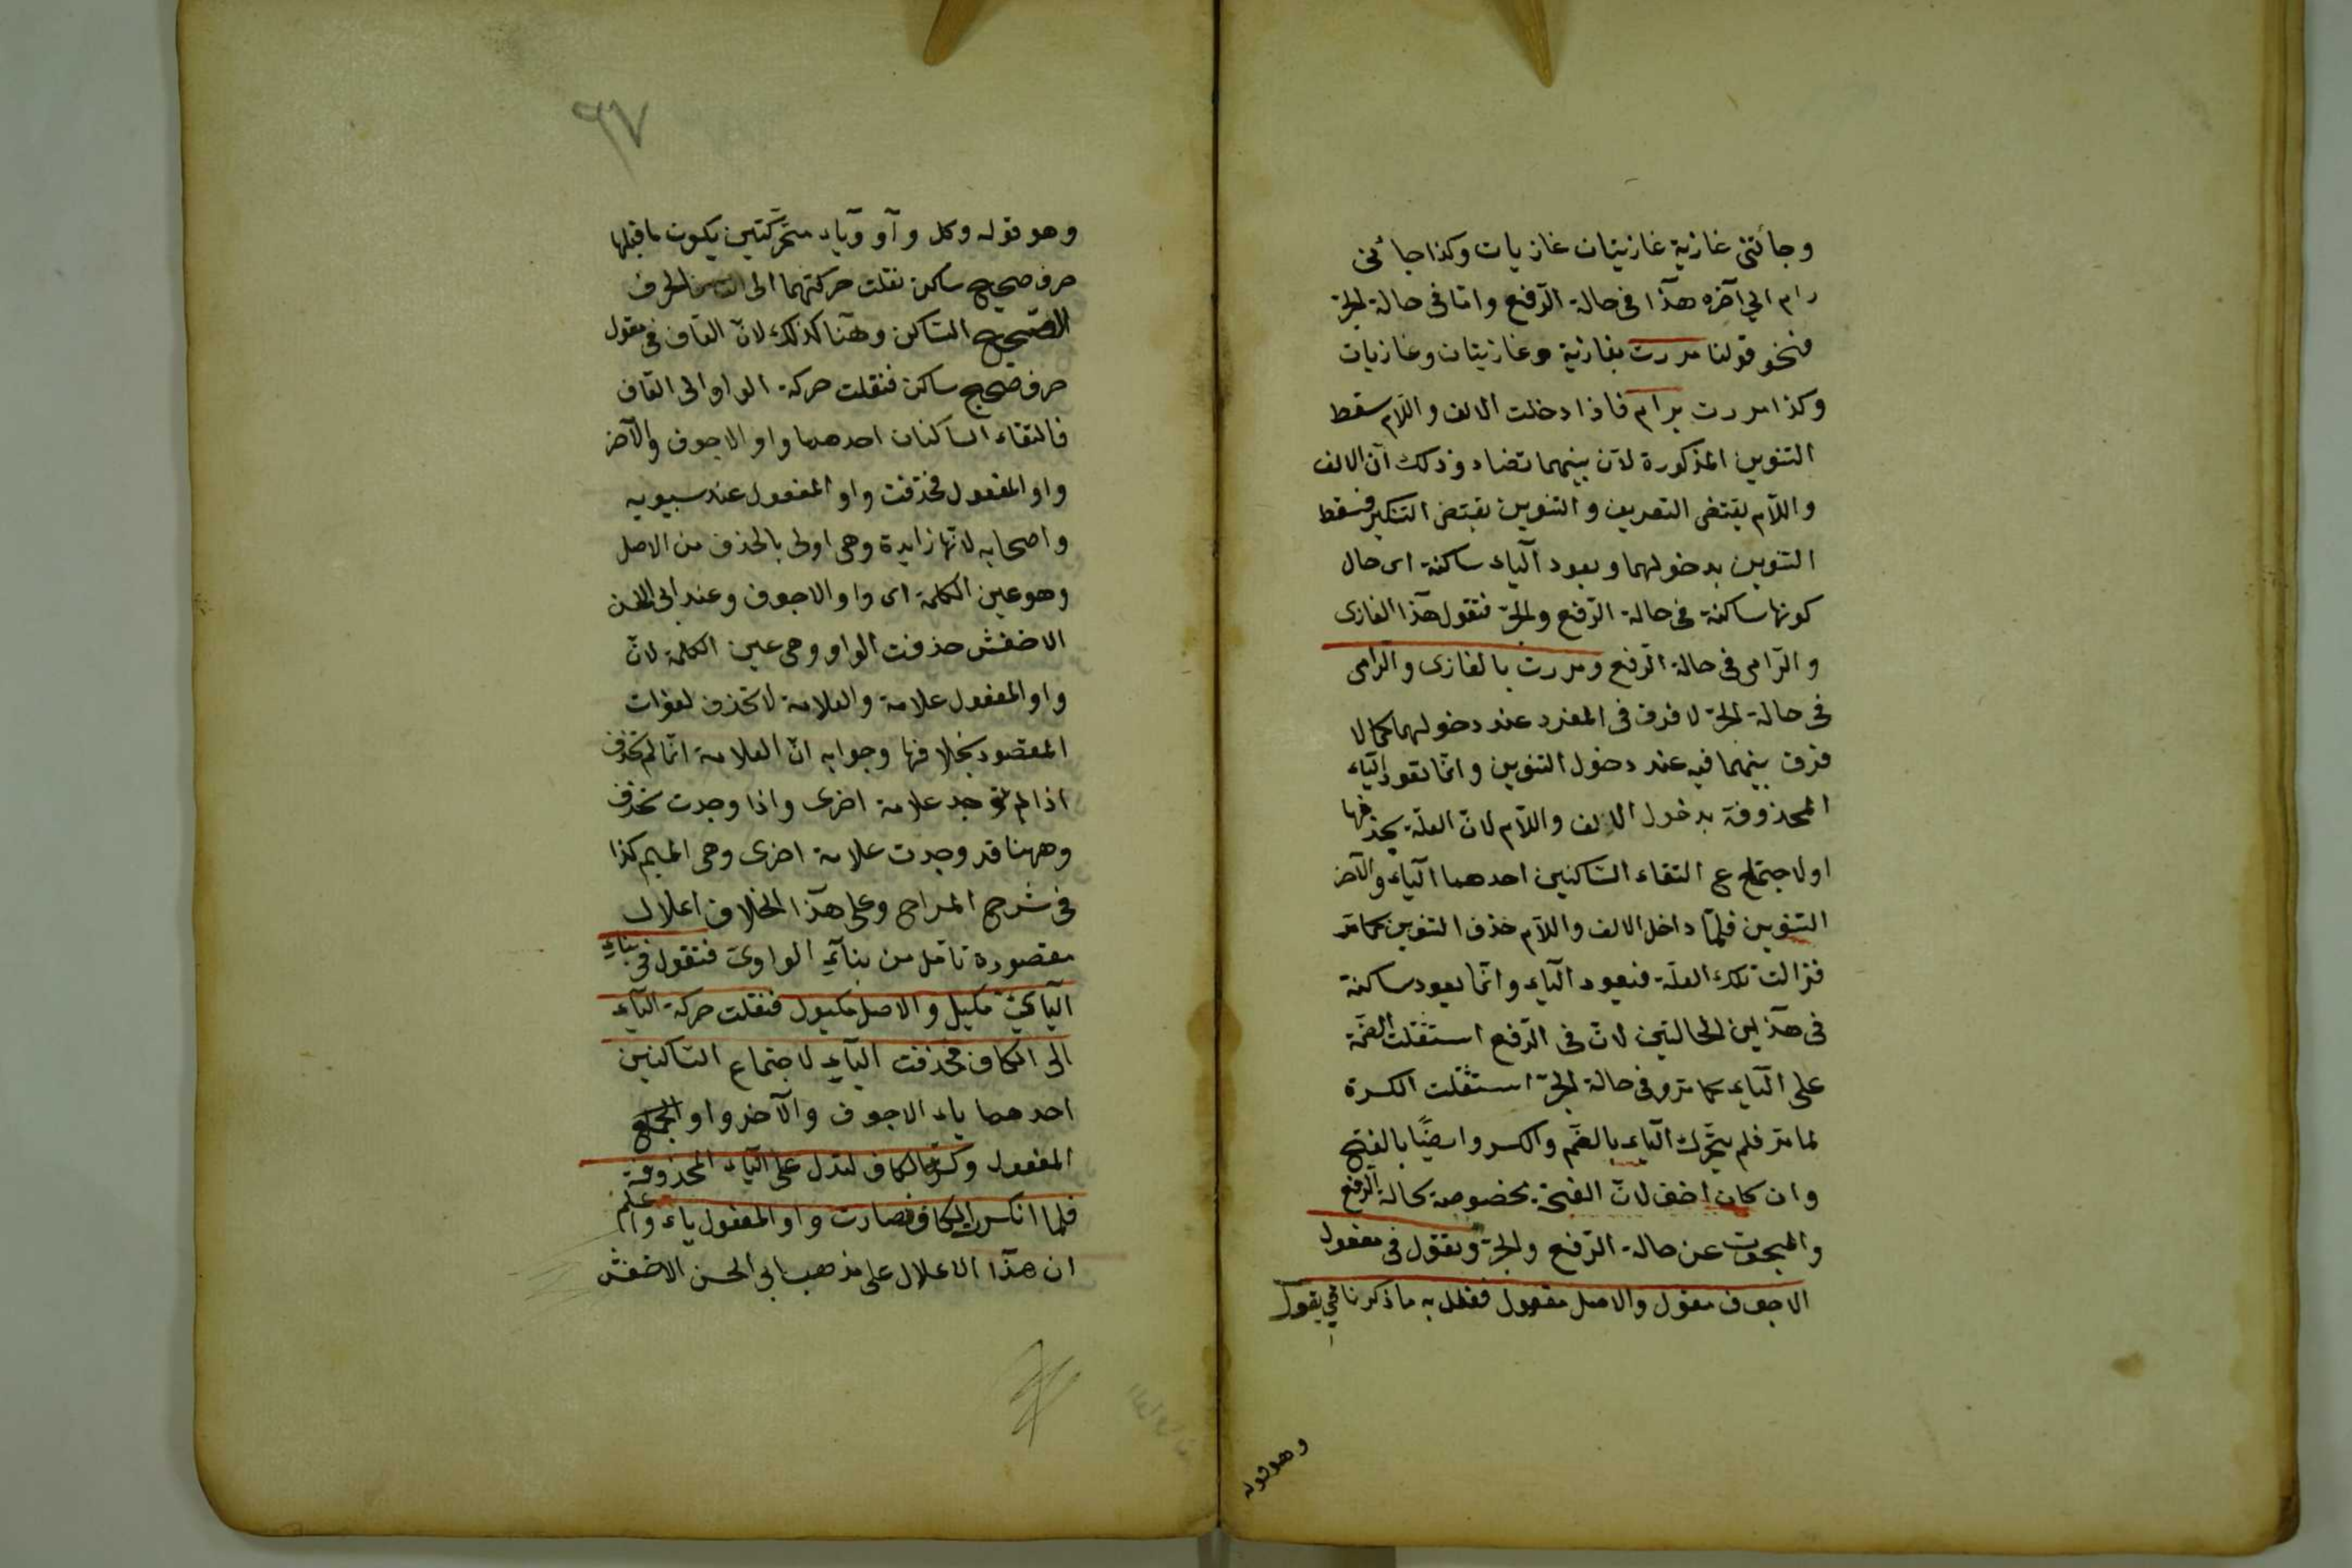 وجائتنى غازية غازيتان غازيات وكذا جائنى
رام الي آخره هذا فى حالة الرّفع وامّا فى حالة الجرّ
فنحو قولنا مررت بغازية وغازيتان وغازيات
وكذا مررت برام فاذا دخلت الالف واللّام سقط
التنوين المذكورة لانّ بينهما تضاد وذلك انّ الالف
واللّام يقتضى التعريف والتنوين يقتضى التنكير فسقط
التنوين بدخولهما ويعود الياء ساكنة اى حال
كونها ساكنة فى حالة الرّفع والجرّ فتقول هذا الغازى
والرّامى فى حالة الرّفع ومررت بالغازى والرّامى
فى حالة الجرّ لا فرق فى المفرد عند دخولهما كما لا
فرق بينهما فيه عند دخول التنوين وانّما تعود الياء
المحذوفة بدخول الالف واللّام لانّ العلّة بحذفها
اولا جتماع التقاء السّاكنين احدهما الياء والآخر
التنوين فلمّا داخل الالف واللّام حذف التنوين كما مرّ
فزالت تلك العلّة فيعود الياء وانّما يعود ساكنة
فى هذين الحالتين لانّ فى الرّفع استثقلت الضمّة
على الياء كما مرّ وفى حالة الجرّ استثقلت الكسرة
لما مرّ فلم يتحرّك الياء بالضمّ والكسر وايضًا بالفتح
وان كان اخف لانّ الفتحة مخصوصة بحالة الرفع
والمبحوث عن حالة الرّفع والجرّ وتقول فى مفعول
الاجوف مقول والاصل مقوول ففعل به ما ذكرنا فى يقول
وهو قوله
٦٧
وهو قوله وكل وآو وياء متحرّكتين يكون ما قبلها
حرف صحيح ساكن نقلت حركتهما الى الحرف
الصحيح السّاكن وهنا كذلك لانّ القاف فى مقول
حرف صحيح ساكن فنقلت حركة الواو الى القاف
فالتقاء الساكنان احدهما واو الاجوف والآخر
واو المفعول فحذفت واو المفعول عند سيبويه
واصحابه لانّها زايدة وهى اولى بالحذف من الاصل
وهو عين الكلمة اى واو الاجوف وعند ابى الحسن
الاخفش حذفت الواو وهى عين الكلمة لانّ
واو المفعول علامة والعلامة لا تحذف لفوات
المقصود بخلافها وجوابه انّ العلامة انّما لم تحذف
اذا لم توجد علامة اخرى واذا وجدت تحذف
وههنا قد وجدت علامة اخرى وهى الميم كذا
فى شرح المراح وعلى هذا الخلاف اعلال
مقصورة تأمل من بنآء الواوىّ فتقول فى بناء
اليائىّ مكيل والاصل مكيول فنقلت حركة الياء
الى الكاف فحذفت الياء لاجتماع السّاكنين
احدهما ياء الاجوف والآخر واو
المفعول وكسر الكاف لتدل على الياء المحذوفة
فلما انكسر الكاف فصارت واو المفعول ياء واعلم
ان هذا الاعلال على مذهب ابى الحسن الاخفش